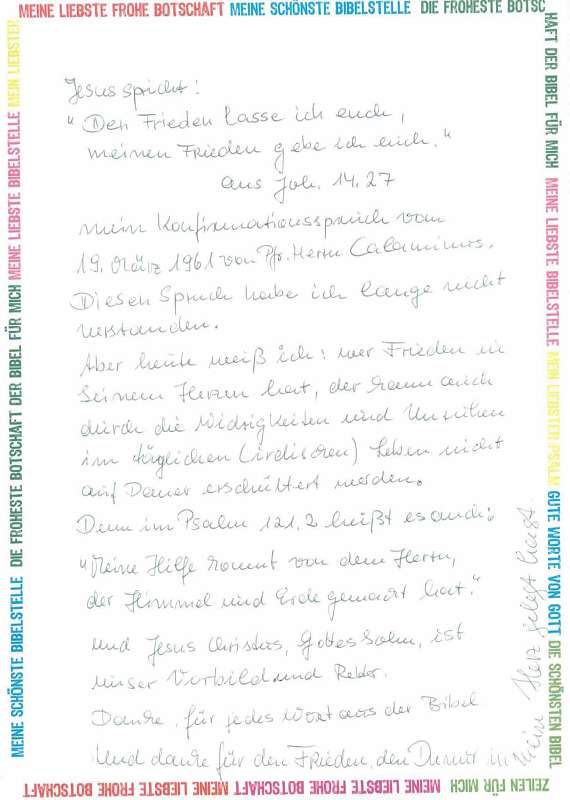 MEINE LIEBSTE FROHE BOTSCHAFT MEINE SCHÖNSTE BIBELSTELLE DIE FROHESTE BOTSC
HAFT DER BIBEL FÜR MICH MEINE LIEBSTE BIBELSTELLE MEIN LIEBSTER PSALM GUTE WORTE VON GOTT DIE SCHÖNSTEN BIBEL
ZEILEN FÜR MICH MEINE LIEBSTE FROHE BOTSCHAFT MEINE LIEBSTE FROHE BOTSCHAFT
MEINE SCHÖNSTE BIBELSTELLE DIE FROHESTE BOTSCHAFT DER BIBEL FÜR MICH MEINE LIEBSTE BIBELSTELLE MEIN LIEBSTER
Jesus spricht!
"Den Frieden lasse ich euch,
meinen Frieden gebe ich euch."
aus Joh. 14.27
Mein Konfirmationsspruch vom
19. März 1961 von Pfr. Herrn Calaminus.
Diesen Spruch habe ich lange nicht
verstanden.
Aber heute weiß ich: wer Frieden in
seinem Herzen hat, der kann auch
durch die Widrigkeiten und Unruhen
im täglichen (irdischen) Leben nicht
auf Dauer erschüttert werden.
Denn im Psalm 121.2 heißt es auch:
"Meine Hilfe kommt von dem Herrn,
der Himmel und Erde gemacht hat."
und Jesus Christus, Gottes Sohn, ist
unser Vorbild und Retter.
Danke, für jedes Wort aus der Bibel
Und danke für den Frieden, den Du mir in
mein Herz gelegt hast.